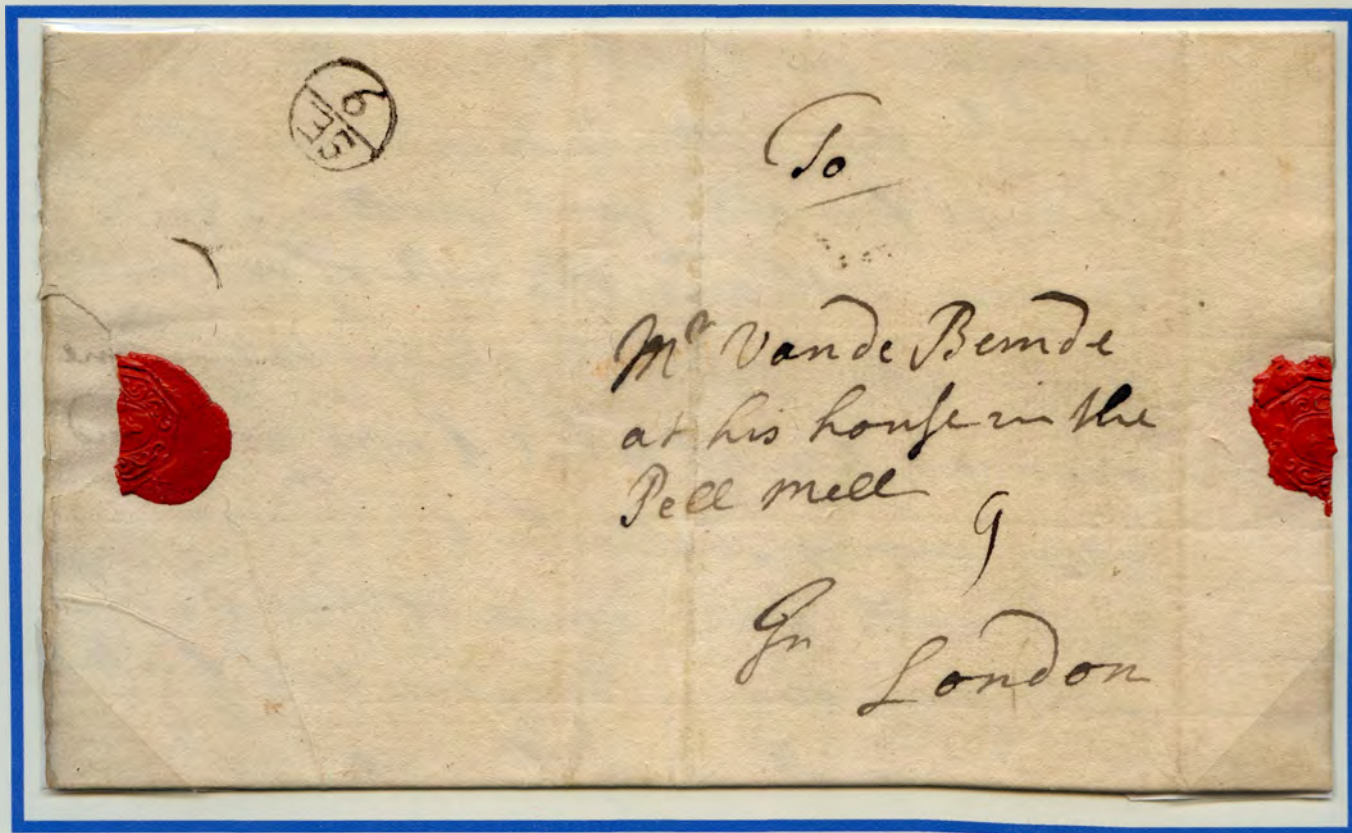 6
SE
To
Mr Vande Bemde
at his house in the
Pell mell
9
In
London